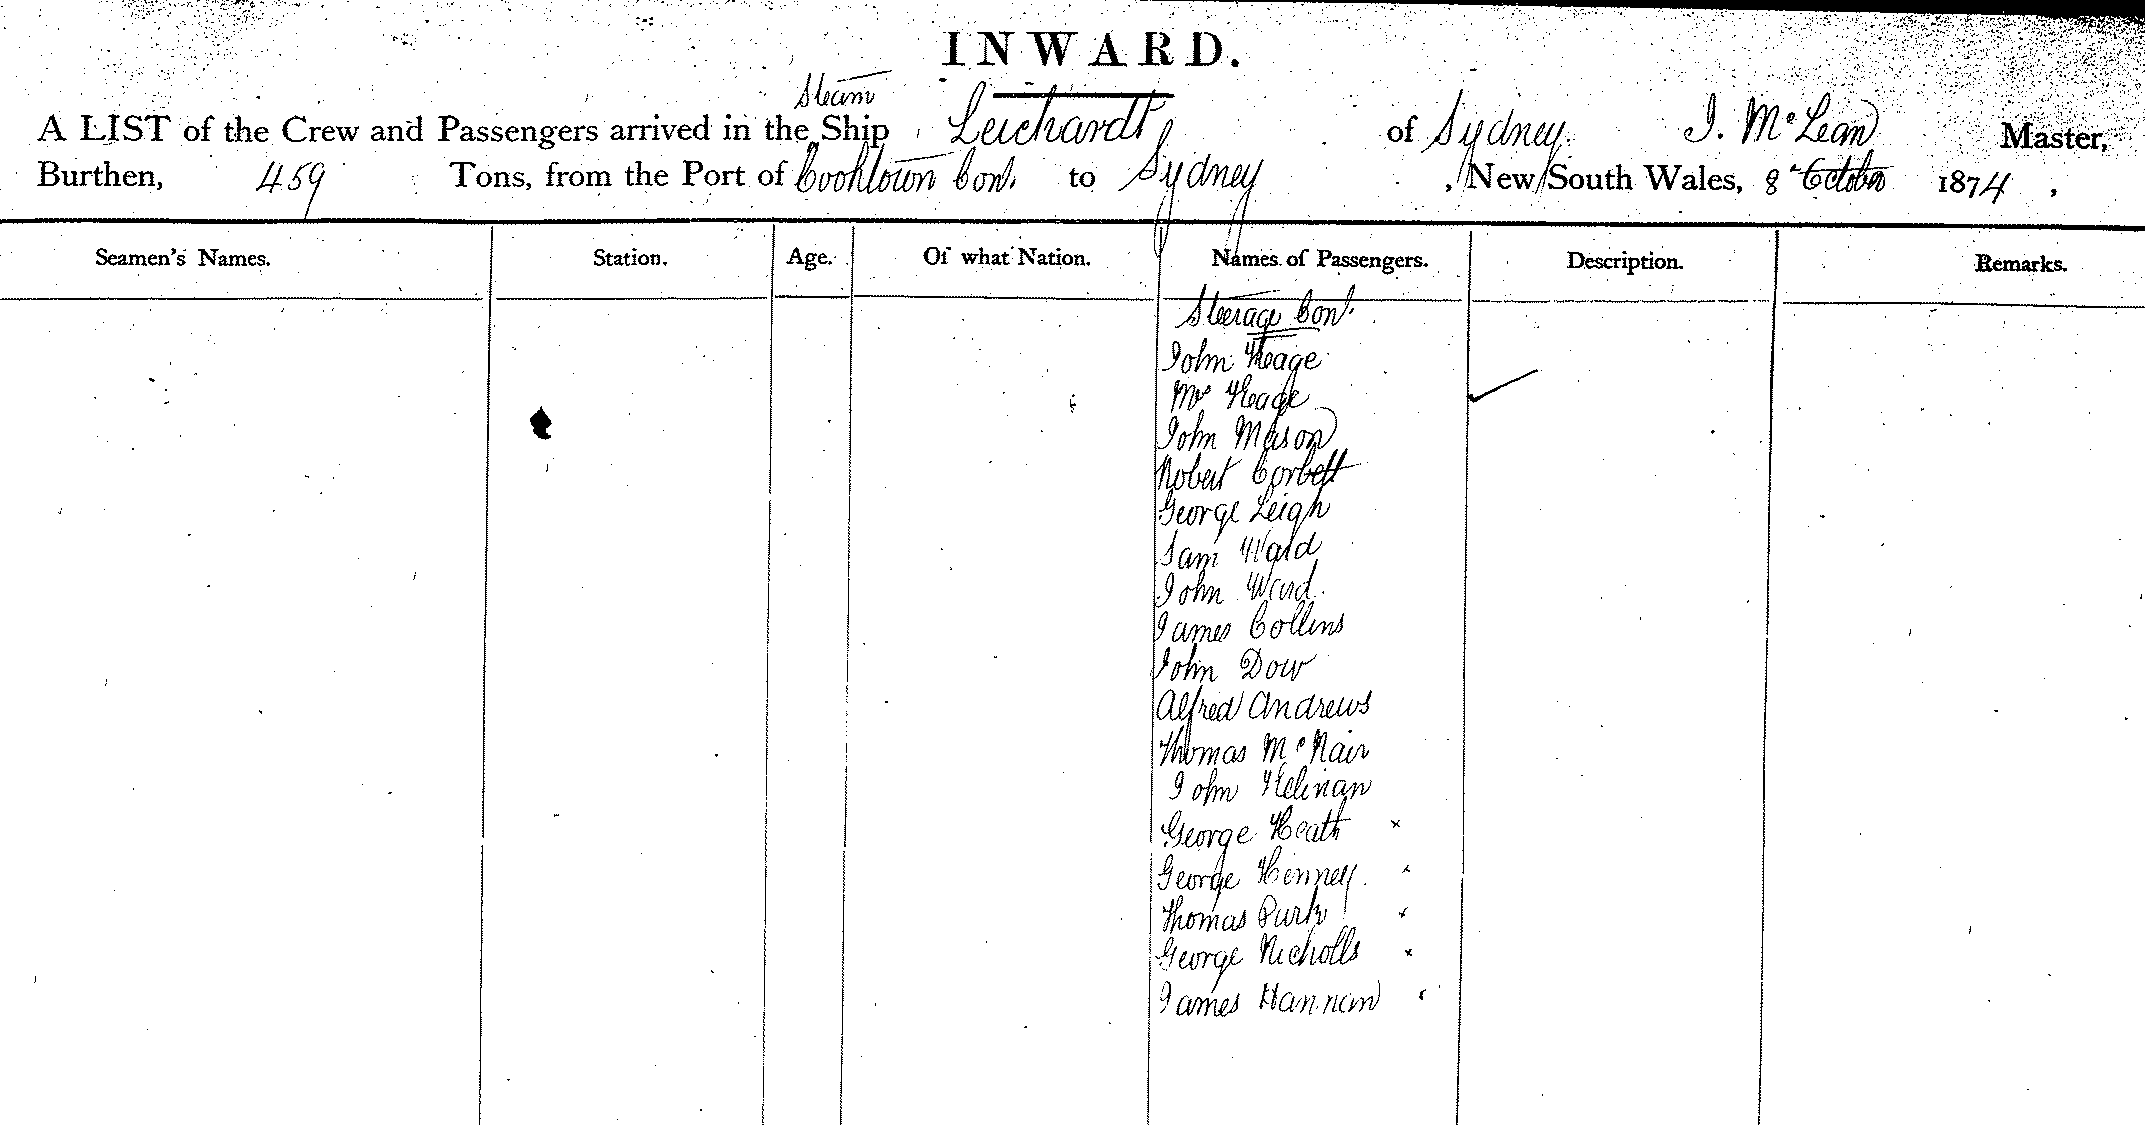 INWARD.
Steam
A LIST of the Crew and Passengers arrived in the Ship Leichardt of Sydney J. McLean Master,
Burthen, 459 Tons, from the Port of Cooktown Con. to Sydney, New South Wales, 8 October 1874,
Seamen's Names. Station. Age. Of what Nation. Names of Passengers. Description. Remarks.
Steerage Con.
John Heage
Mrs Heage
John Mason
Robert Corbett
George Leigh
Sam Wald
John Ward
James Collins
John Dow
Alfred Andrews
Thomas McNair
John
George Heath x
George x
Thomas x
George Nicholls x
James Hannan